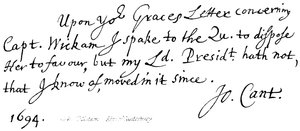 Upon yoʳ Graces Letter concerning
Capt. Wickam I spake to the Qu. to dispose
Her to favour but my Ld. Presidᵗ. hath not,
that I know of, moved in it since.
Jo. Cant.
1694.